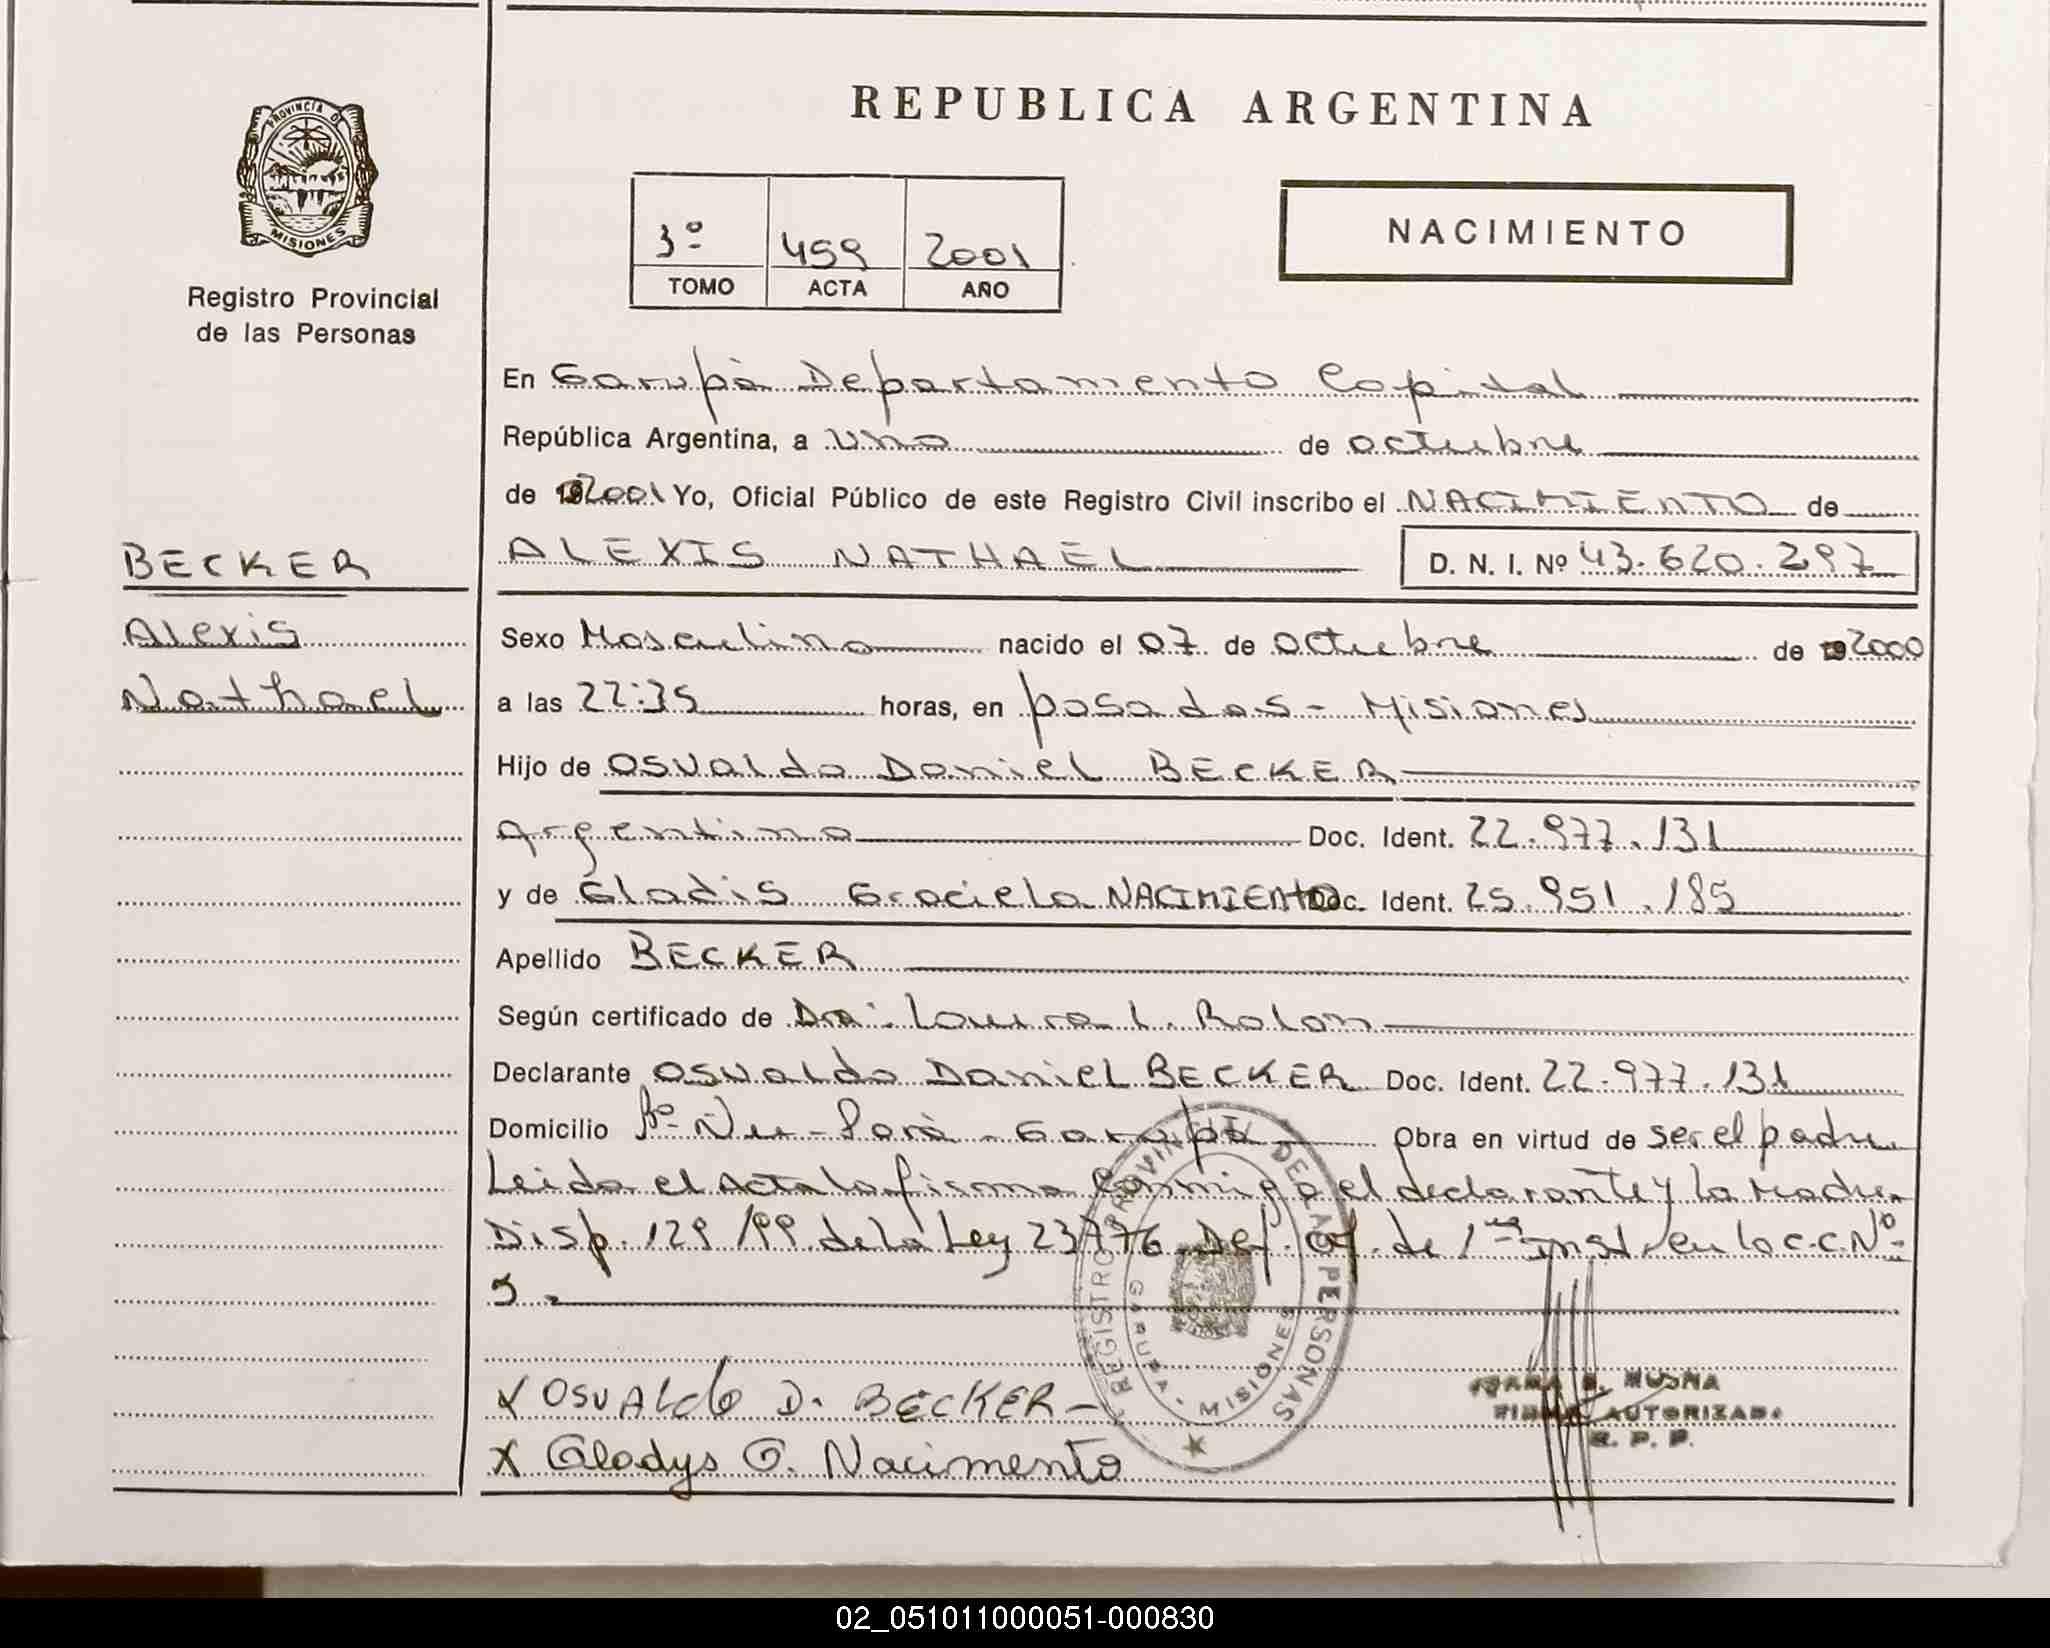 REPUBLICA ARGENTINA
PROVINCIA DE
MISIONES
Registro Provincial
de las Personas
3º 459 2001
TOMO ACTA AÑO
NACIMIENTO
En Garupá Departamento Capital
República Argentina, a uno de octubre
de 192001 Yo, Oficial Público de este Registro Civil inscribo el NACIMIENTO de
BECKER
ALEXIS NATHAEL D. N. I. Nº 43.620.297
Alexis
Sexo Masculino nacido el 07 de octubre de 192000
Nathael
a las 22:35 horas, en posadas - Misiones
Hijo de Osvaldo Daniel BECKER
Argentino Doc. Ident. 22.977.131
y de Gladis Graciela NACIMIENTO Doc. Ident. 25.951.185
Apellido BECKER
Según certificado de Dra. Laura L. Rolon
Declarante Osvaldo Daniel BECKER Doc. Ident. 22.977.131
Domicilio Bº Ñu-Porá - Garupá Obra en virtud de ser el padre
Leida el Acta la firma conmigo el declarante y la Madre
Disp. 129/99 de la Ley 23776. Def. Of. de 1ra Inst. en lo C.C. Nº
3.
REGISTRO PROVINCIAL DE LAS PERSONAS
GARUPA - MISIONES
X OSVALDO D. BECKER -
X Gladys G. Nacimento
FIRMA AUTORIZADA
R. P. P.
02_051011000051-000830